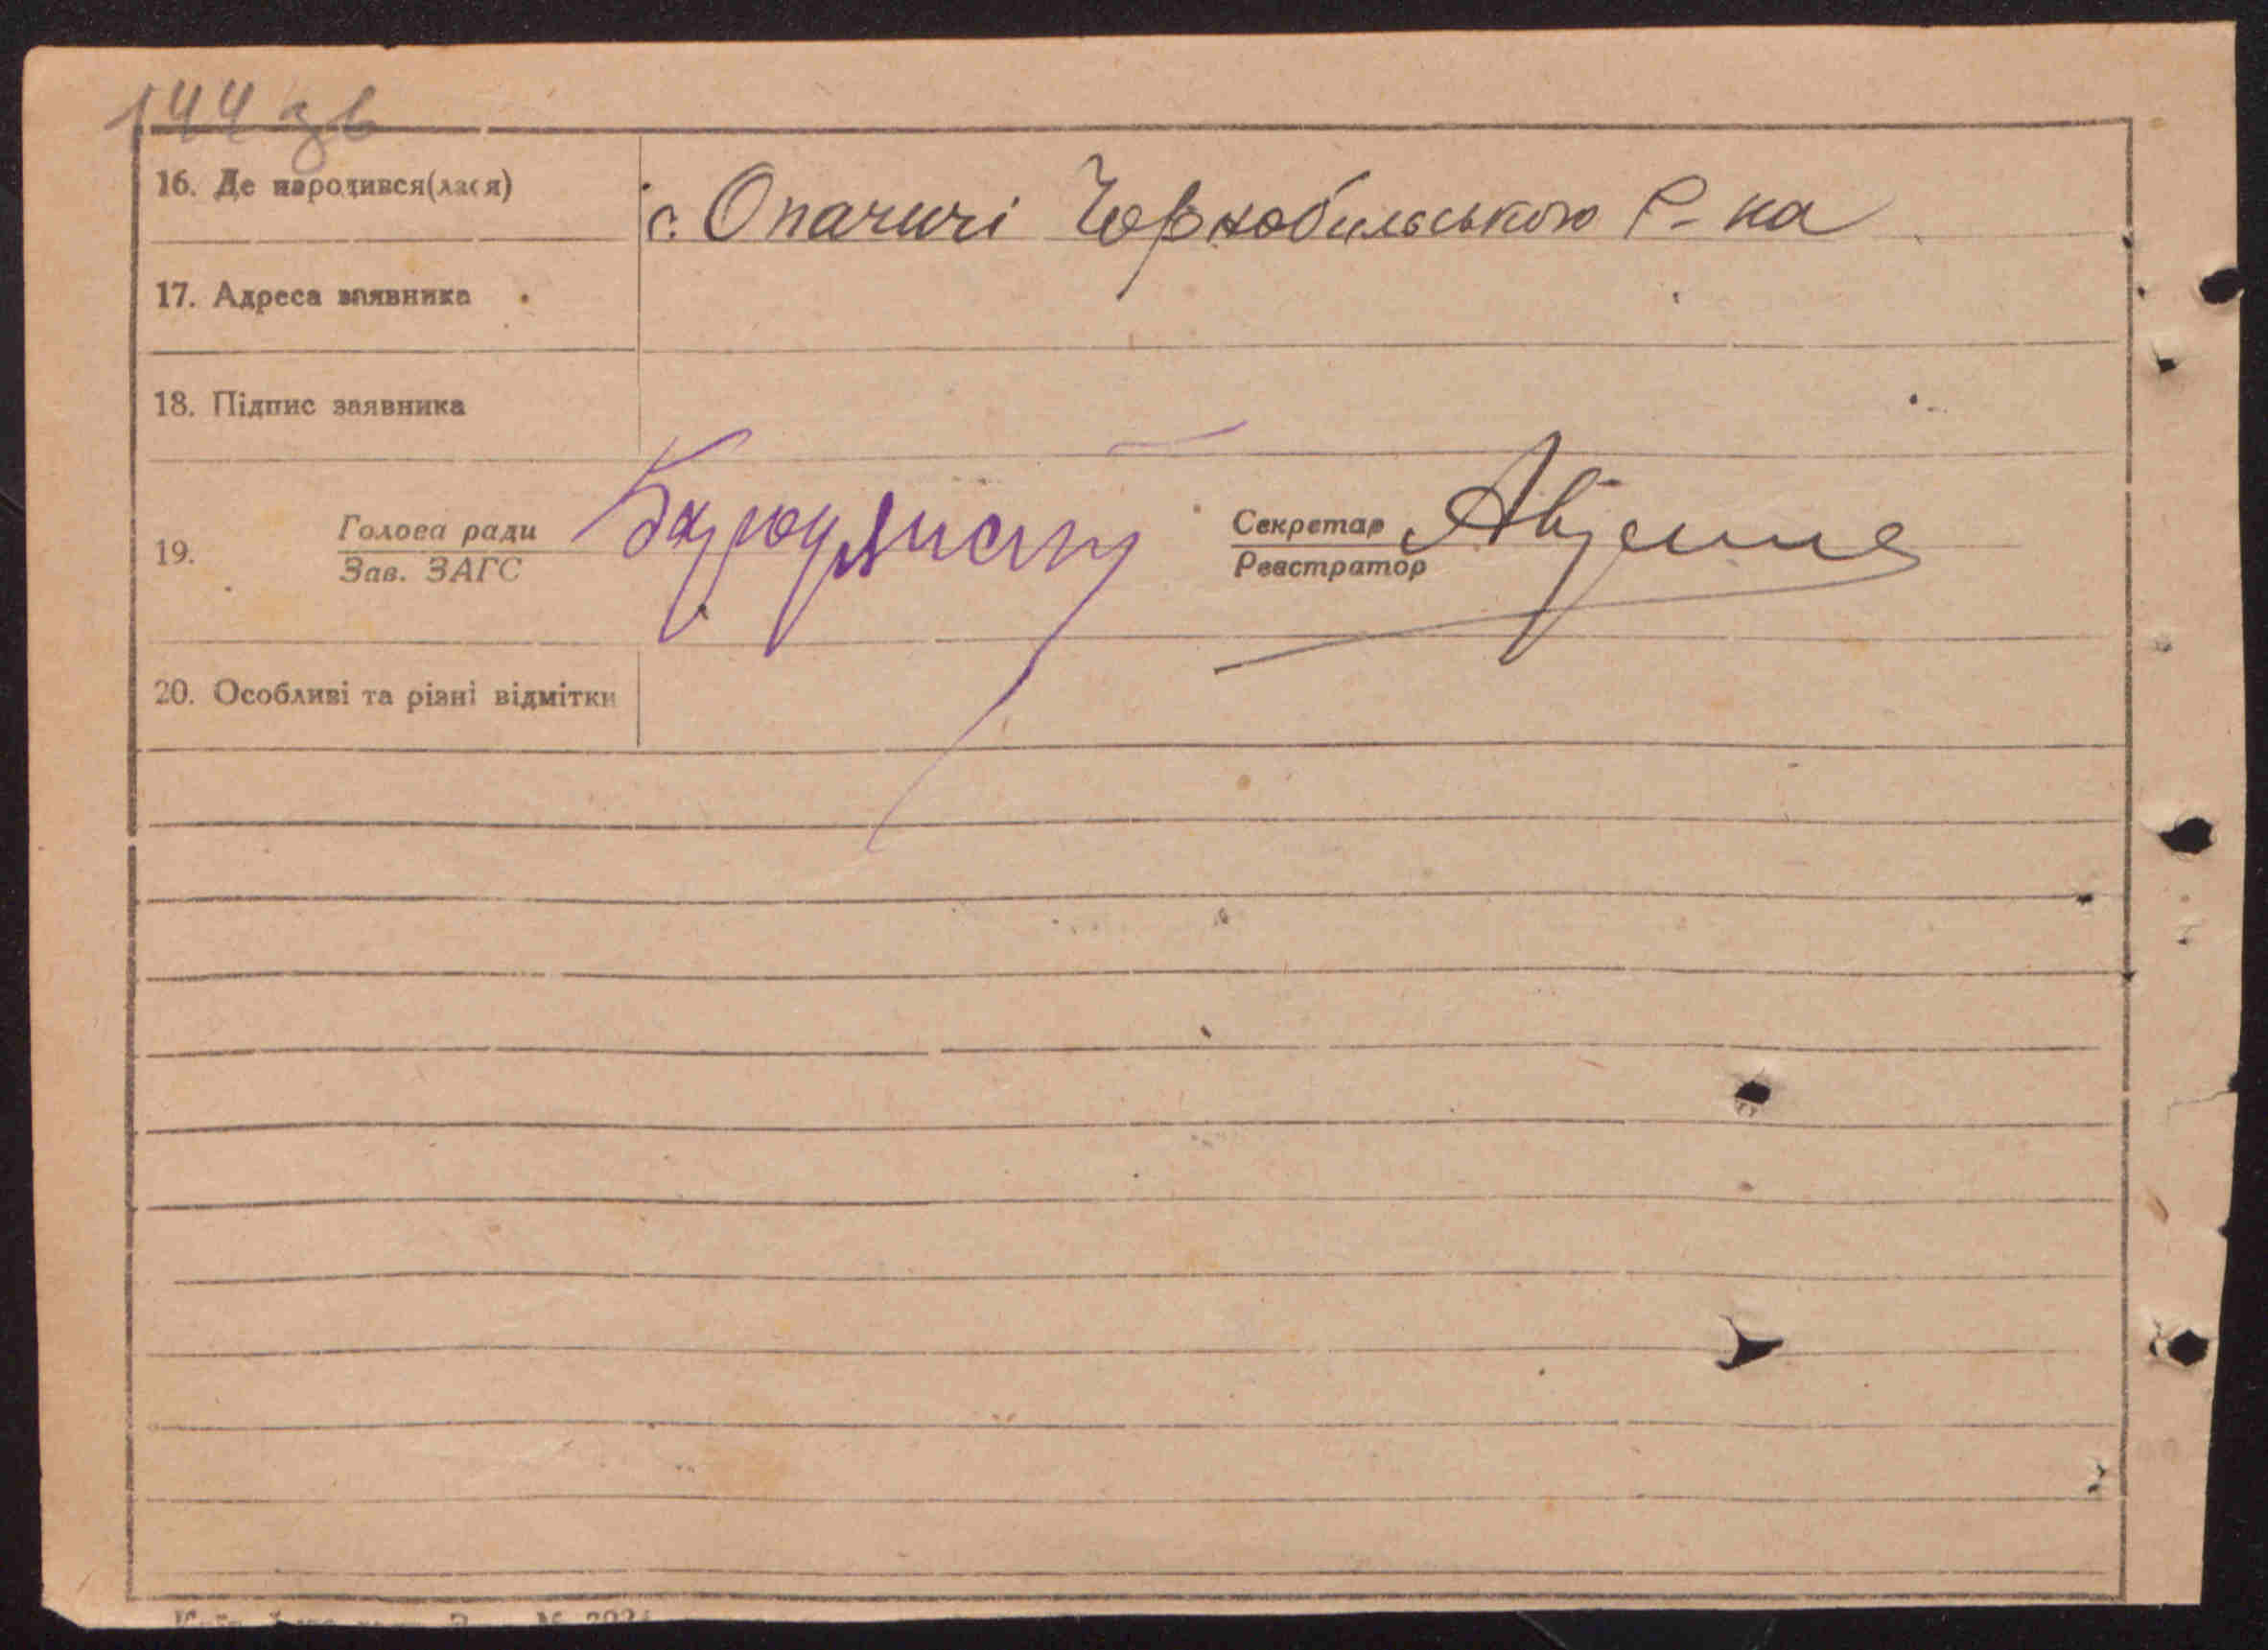 144 зв
16. Де народився(лася)
с. Опачичі Чорнобильського р-на
17. Адреса заявника
18. Підпис заявника
19.
Голова ради
Зав. ЗАГС
Секретар
Реєстратор
20. Особливі та різні відмітки